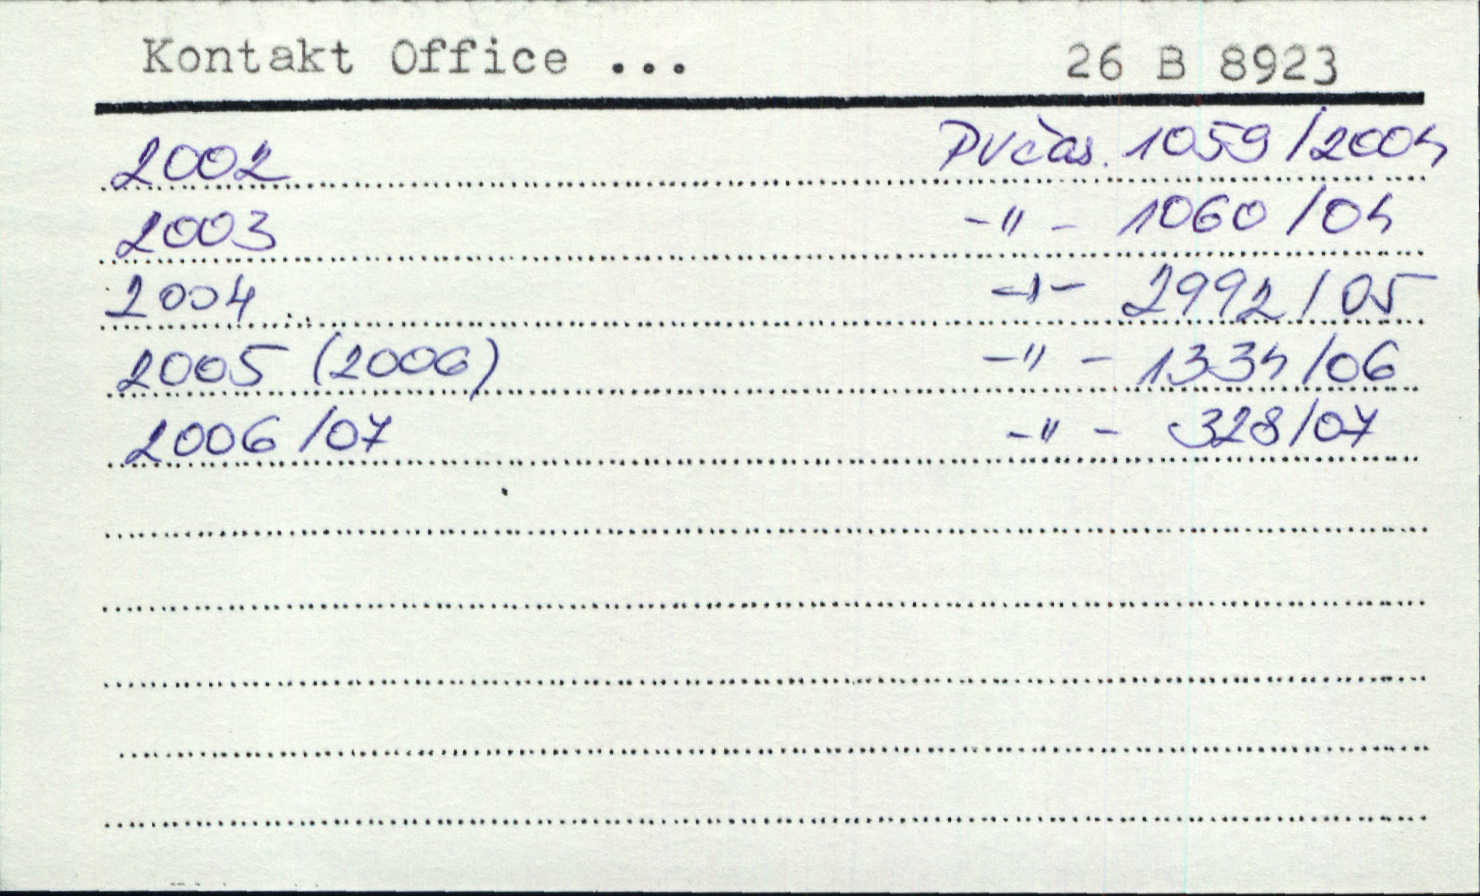 Kontakt Office ... 26 B 8923
2002 PVčas. 1059/2004
2003 -"- 1060/04
2004 -"- 2992/05
2005 (2006) -"- 1334/06
2006/07 -"- 328/07